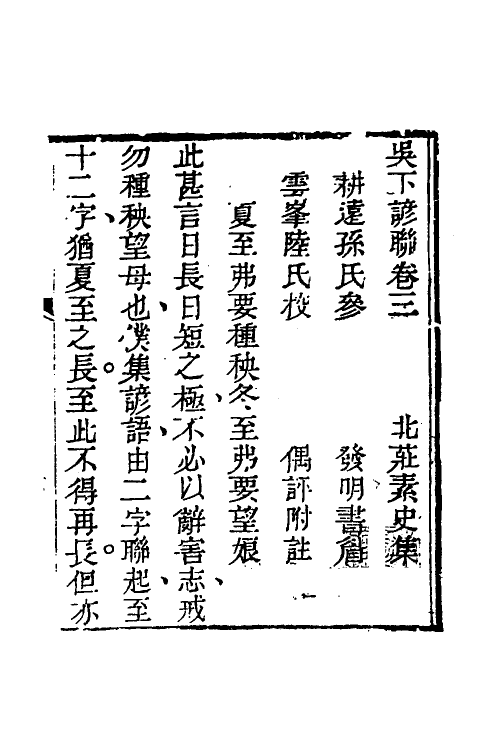 吳下諺聯卷三　北莊素史集
耕遠孫氏參　發明書
雲峯陸氏校　偶評附註
夏至弗要種秧、冬至弗要望娘
此甚言日長日短之極、不必以辭害志、戒
勿種秧望母也、僕集諺語、由二字聯起、至
十二字、猶夏至之長至此不得再長。但亦